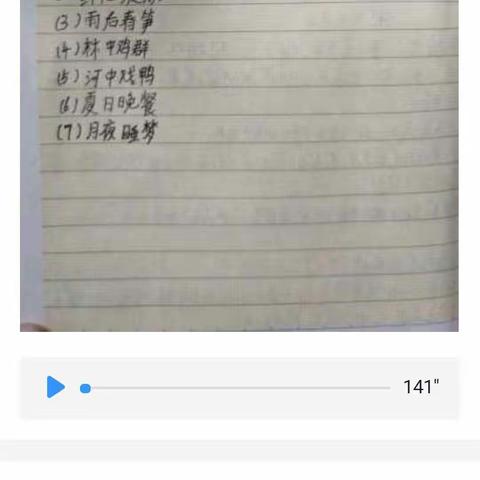 (3)雨后春笋
(4)林中鸡群
(5)河中戏鸭
(6)夏日晚餐
(7)月夜睡梦
141"